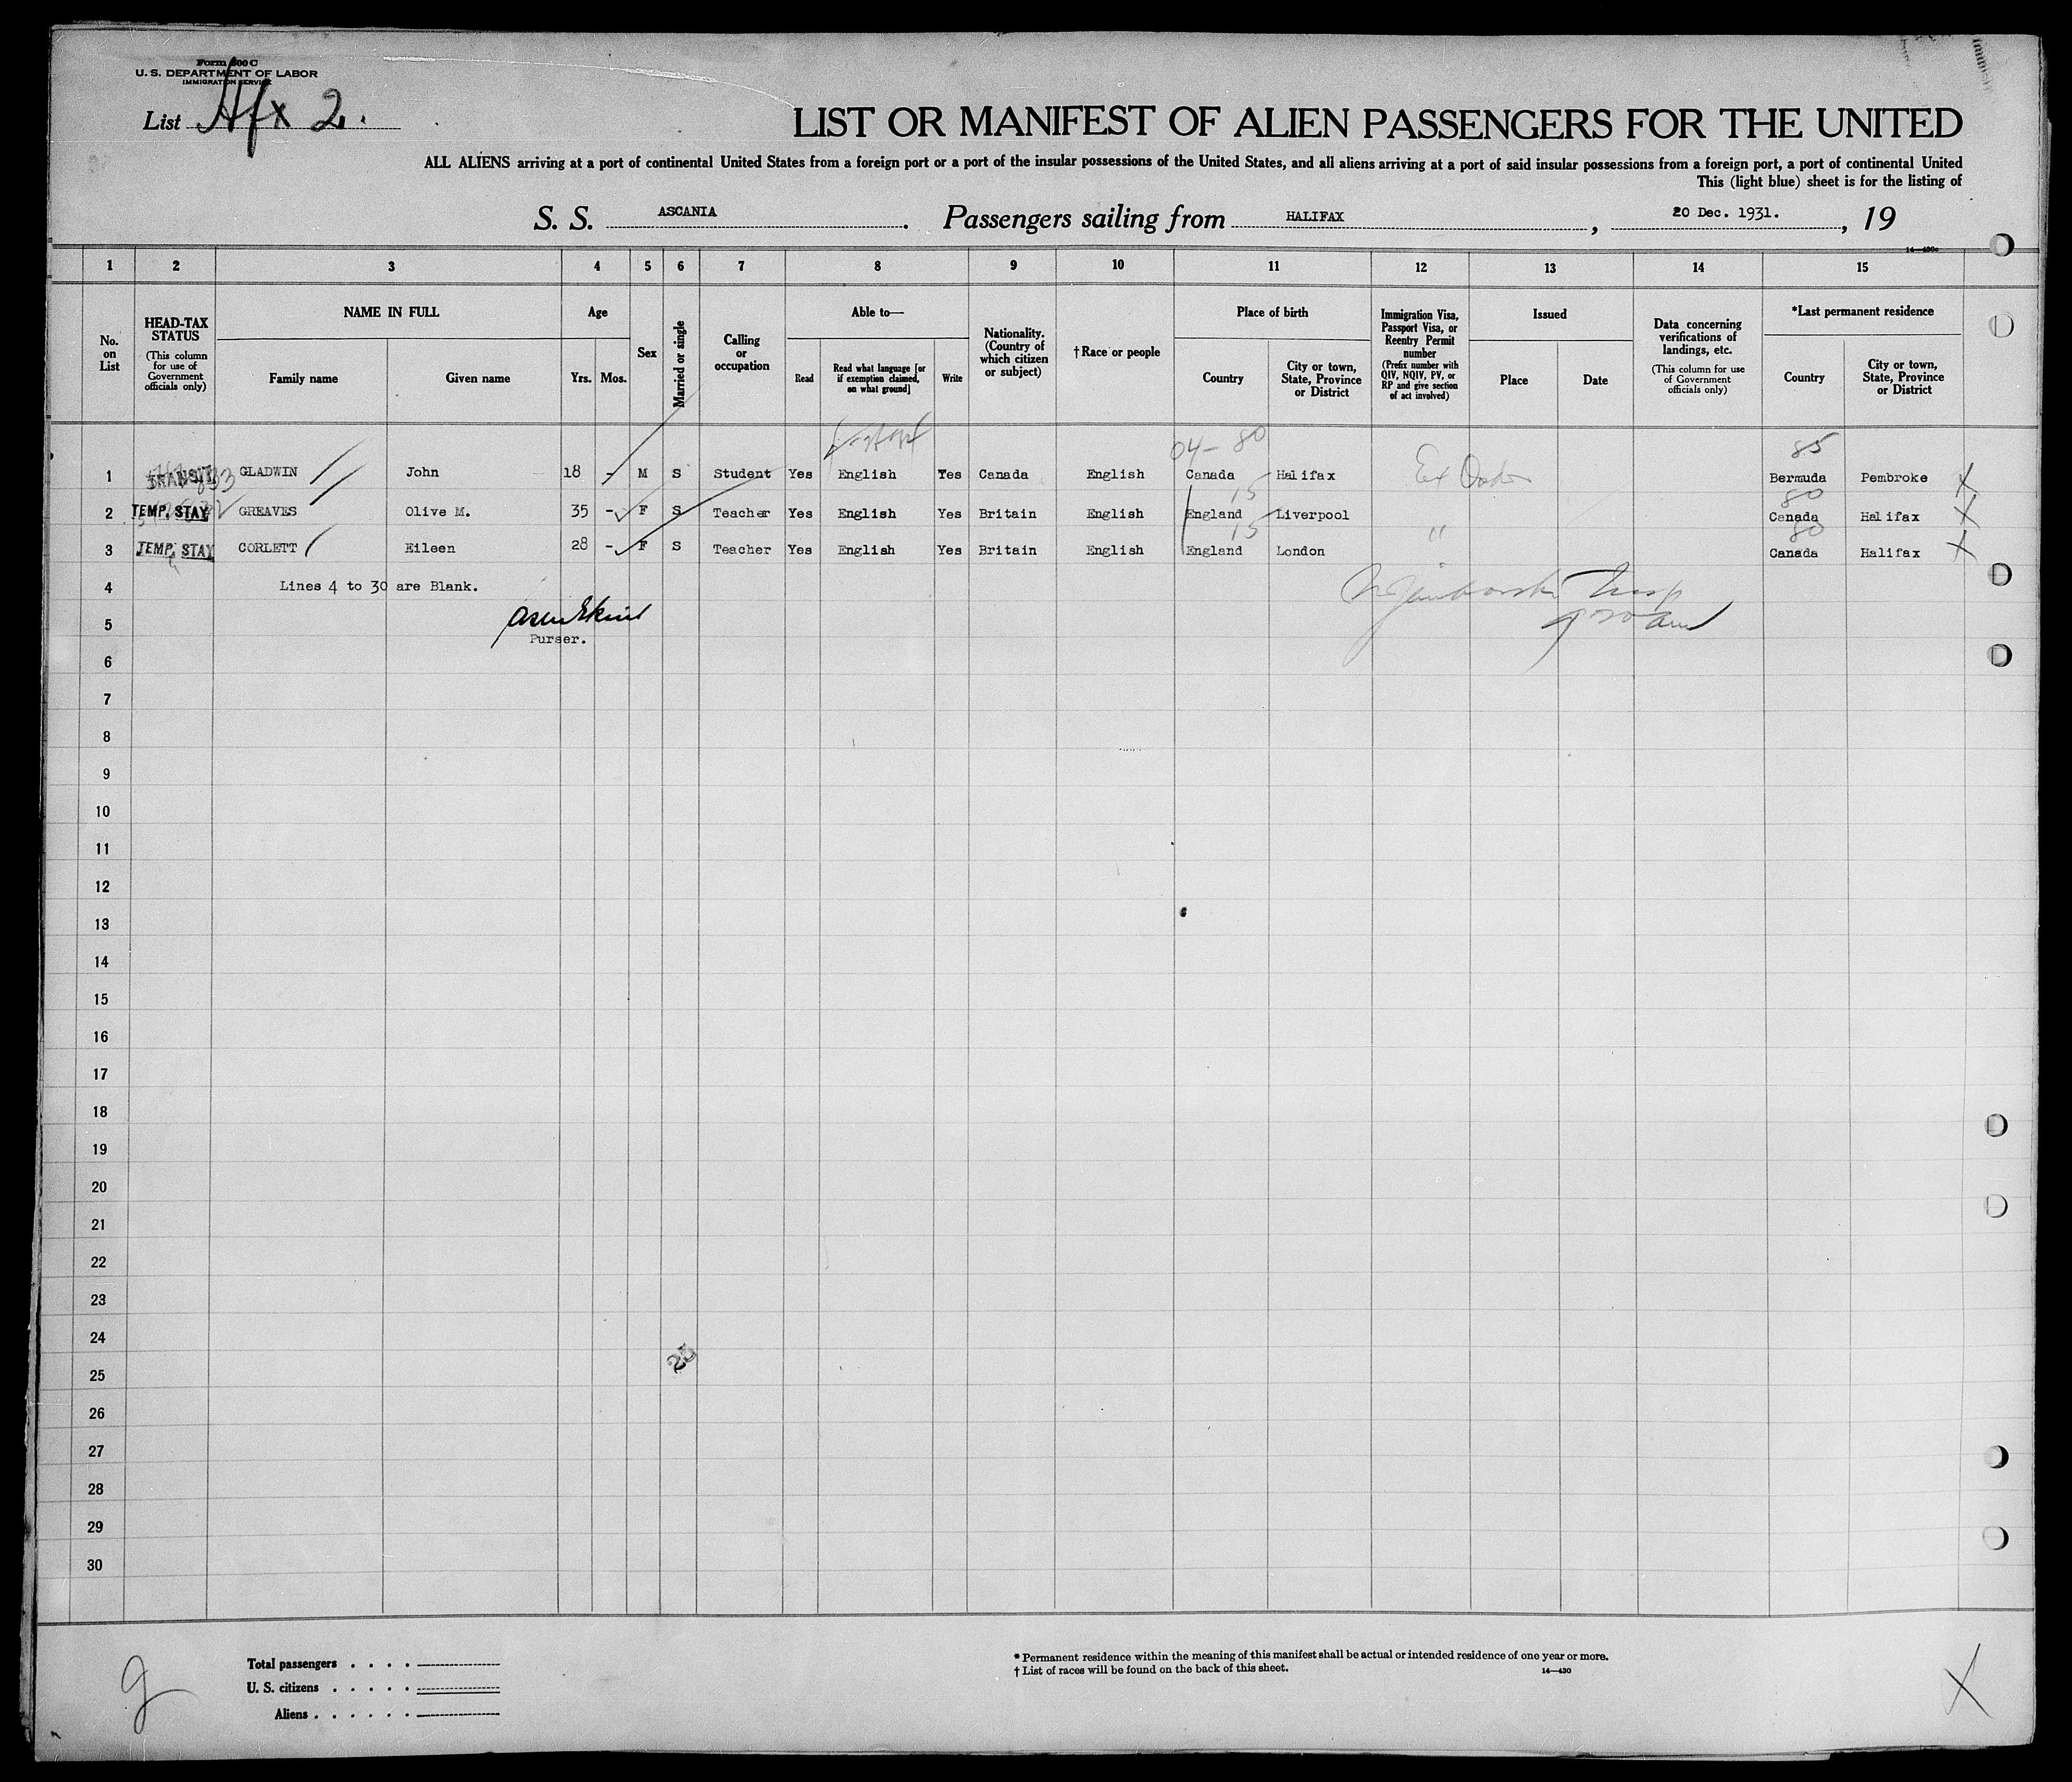 Form 500 C
U. S. DEPARTMENT OF LABOR
IMMIGRATION SERVICE
List Hfx 2.
LIST OR MANIFEST OF ALIEN PASSENGERS FOR THE UNITED
ALL ALIENS arriving at a port of continental United States from a foreign port or a port of the insular possessions of the United States, and all aliens arriving at a port of said insular possessions from a foreign port, a port of continental United
This (light blue) sheet is for the listing of
S. S. ASCANIA. Passengers sailing from HALIFAX, 20 Dec. 1931., 19
1 2 3 4 5 6 7 8 9 10 11 12 13 14 15
No. on List
HEAD-TAX STATUS
(This column for use of Government officials only)
NAME IN FULL
Family name
Given name
Age
Yrs.
Mos.
Sex
Married or single
Calling or occupation
Able to—
Read
Read what language [or if exemption claimed, on what ground]
Write
Nationality. (Country of which citizen or subject)
†Race or people
Place of birth
Country
City or town, State, Province or District
Immigration Visa, Passport Visa, or Reentry Permit number
(Prefix number with QIV, NQIV, PV, or RP and give section of act involved)
Issued
Place
Date
Data concerning verifications of landings, etc.
(This column for use of Government officials only)
*Last permanent residence
Country
City or town, State, Province or District
04- 80 85
1 TRANSIT GLADWIN John 18 - M S Student Yes English Yes Canada English Canada Halifax Bermuda Pembroke X
15 80
2 TEMP. STAY GREAVES Olive M. 35 - F S Teacher Yes English Yes Britain English England Liverpool Canada Halifax X
15 80
3 TEMP. STAY CORLETT Eileen 28 - F S Teacher Yes English Yes Britain English England London " Canada Halifax X
4 Lines 4 to 30 are Blank.
5
Purser.
6
7
8
9
10
11
12
13
14
15
16
17
18
19
20
21
22
23
24
25
25
26
27
28
29
30
Total passengers . . . .
U. S. citizens . . . . .
Aliens . . . . . .
* Permanent residence within the meaning of this manifest shall be actual or intended residence of one year or more.
† List of races will be found on the back of this sheet. 14—430
g
X